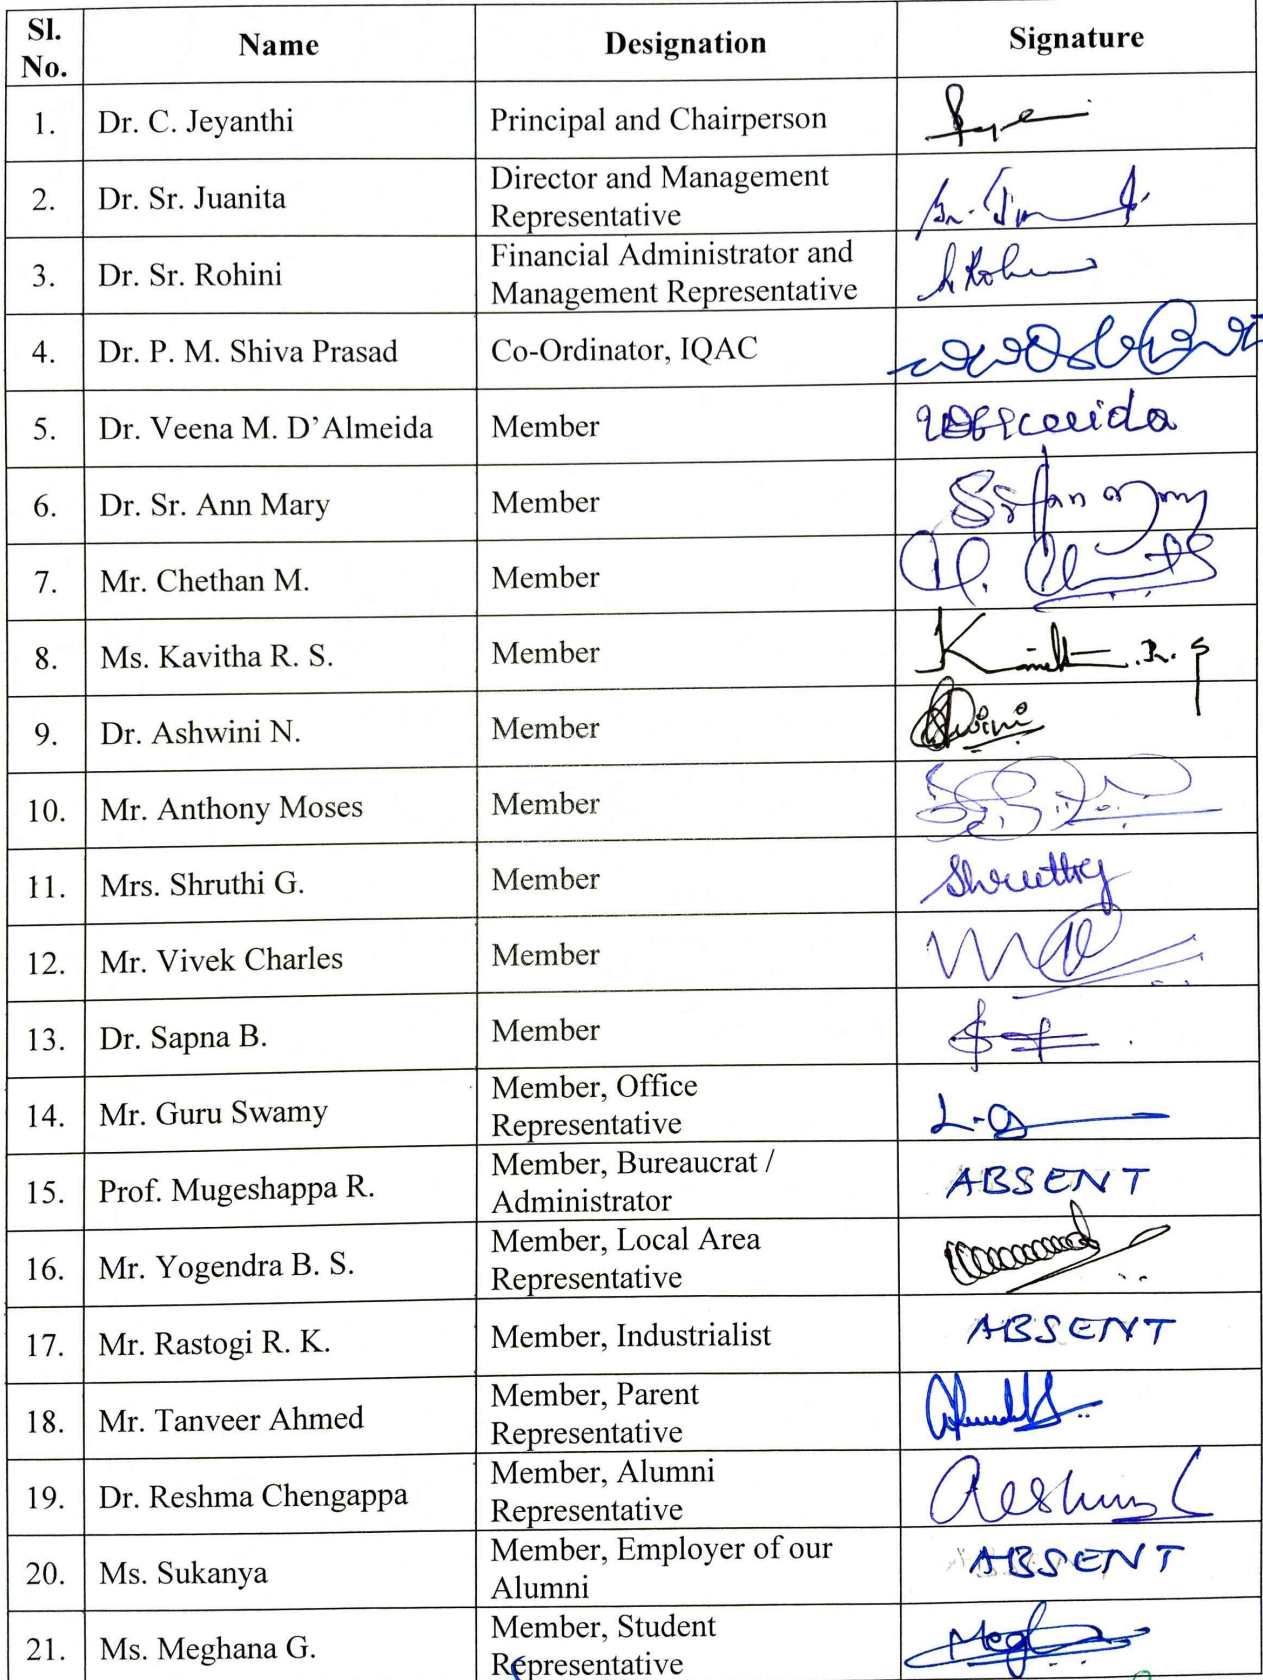 Sl. No. Name Designation Signature
1. Dr. C. Jeyanthi Principal and Chairperson
2. Dr. Sr. Juanita Director and Management
Representative
3. Dr. Sr. Rohini Financial Administrator and
Management Representative
4. Dr. P. M. Shiva Prasad Co-Ordinator, IQAC
5. Dr. Veena M. D’Almeida Member
6. Dr. Sr. Ann Mary Member
7. Mr. Chethan M. Member
8. Ms. Kavitha R. S. Member
9. Dr. Ashwini N. Member
10. Mr. Anthony Moses Member
11. Mrs. Shruthi G. Member
12. Mr. Vivek Charles Member
13. Dr. Sapna B. Member
14. Mr. Guru Swamy Member, Office
Representative
15. Prof. Mugeshappa R. Member, Bureaucrat / ABSENT
Administrator
16. Mr. Yogendra B. S. Member, Local Area
Representative
17. Mr. Rastogi R. K. Member, Industrialist ABSENT
18. Mr. Tanveer Ahmed Member, Parent
Representative
19. Dr. Reshma Chengappa Member, Alumni
Representative
20. Ms. Sukanya Member, Employer of our ABSENT
Alumni
21. Ms. Meghana G. Member, Student
Representative